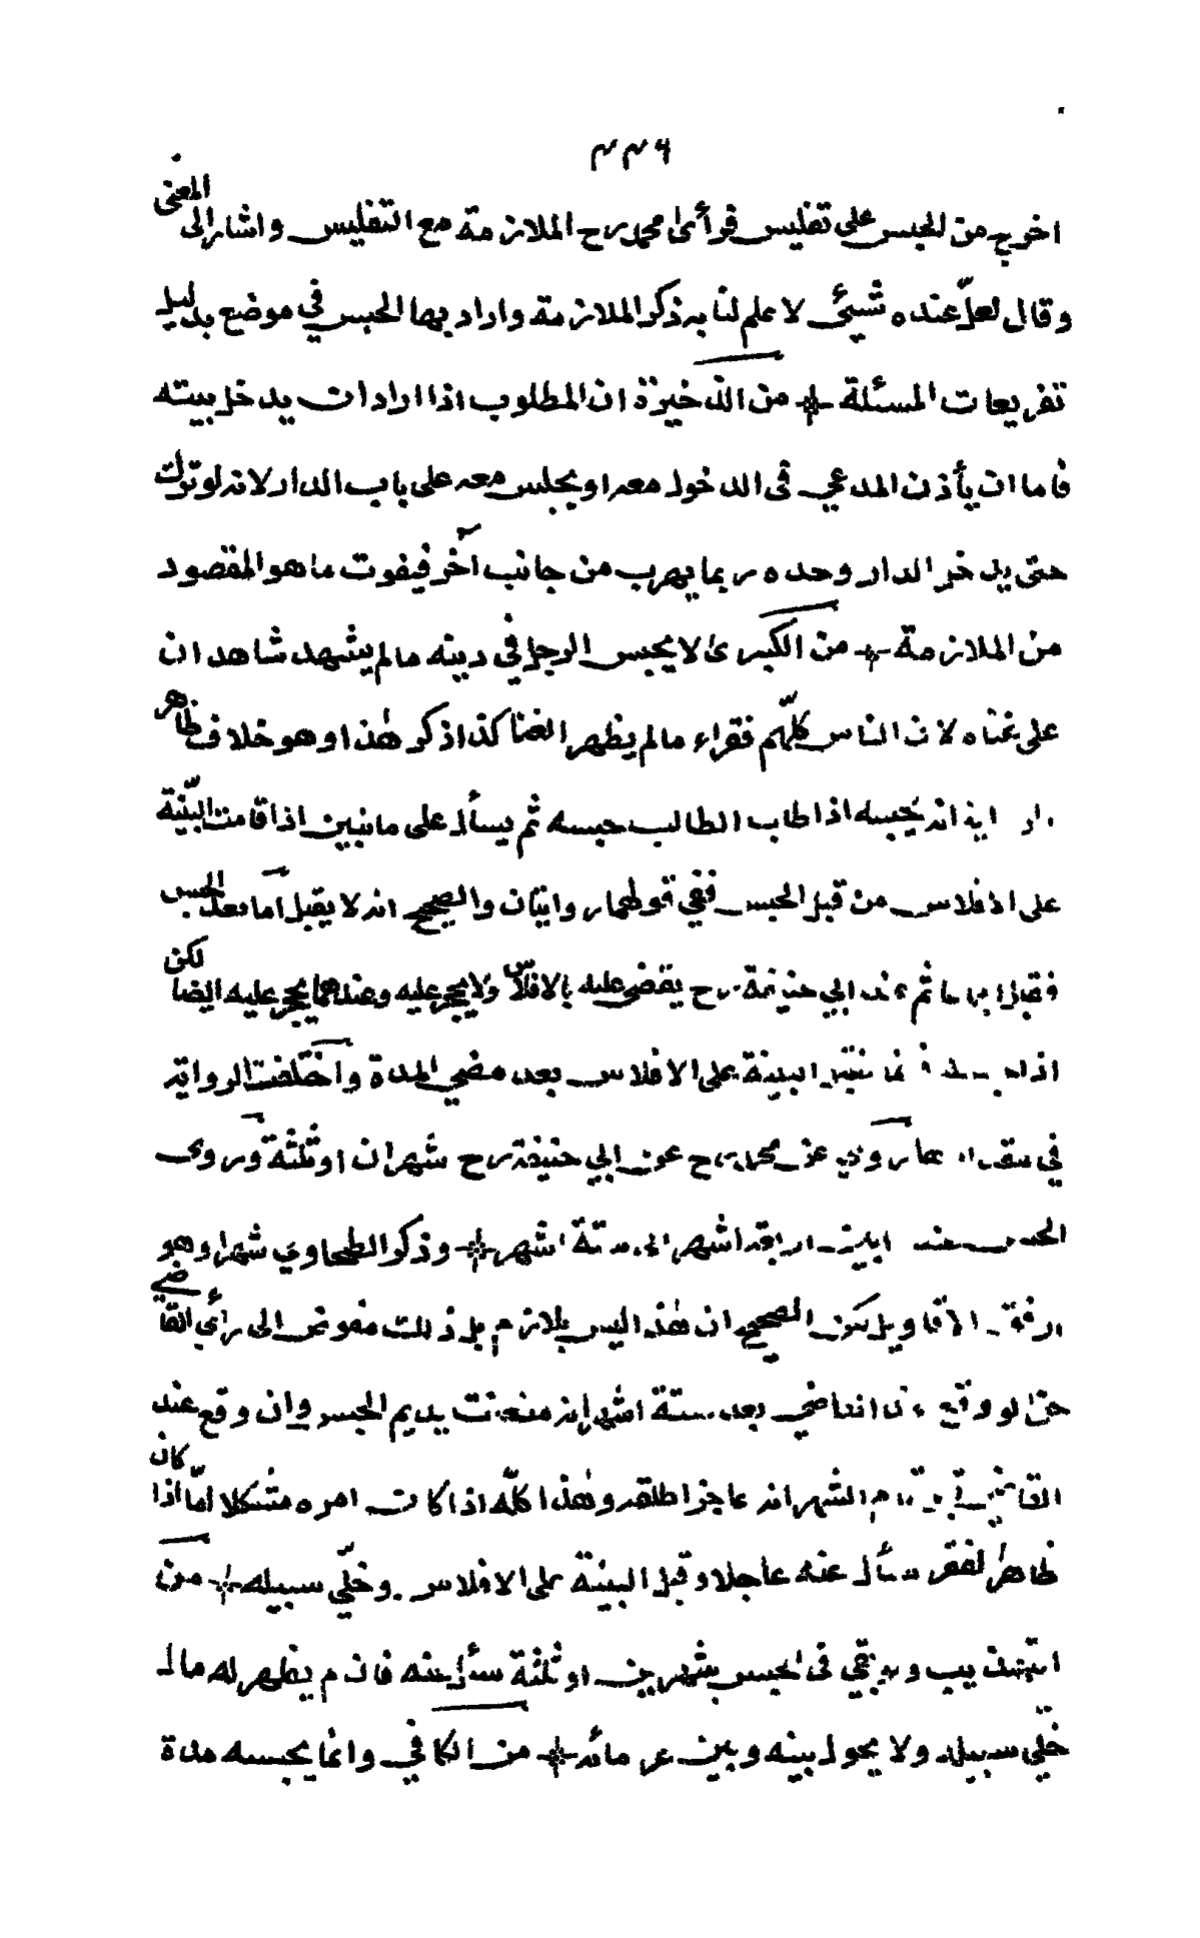 ٢٢٦
اخرج من الحبس على تفليس فرأى محمد رح الملازمة مع التفليس واشار الى المعنى
وقال لعلّ عنده شيئ لا علم لنا به ذكر الملازمة واراد بها الحبس في موضع بدليل
تفريعات المسئلة من الذخيرة ان المطلوب اذا اراد ان يدخل بيته
فاما ان يأذن المدعي فى الدخول معه او يجلس معه على باب الدار لانه لو ترك
حتى يدخل الدار وحده ربما يهرب من جانب آخر فيفوت ما هو المقصود
من الملازمة من الكبرى لا يحبس الرجل في دينه ما لم يشهد شاهدان
على غناه لان الناس كلّهم فقراء ما لم يظهر الغنا كذا ذكر هٰذا وهو خلاف ظاهر
انه يحبسه اذا طاب الطالب حبسه ثم يسأل على ما نبين اذا قامت البيّنة
على الافلاس من قبل الحبس ففي قوطهما روايتان والصحيح انه لا يقبل اما بعد الحبس
ثم عند ابي حنيفة رح يقضى عليه بالافلاس ولا يحجر عليه وعندهما يحجر عليه ايضا لكن
البينة على الافلاس بعد مضي المدة واختلفت الرواية
في روي عن محمد رح عن ابي حنيفة رح شهران او ثلثة وروى
الحسن اربعة اشهر الى ستة اشهر وذكر الطحاوي شهرا وهو
ارفق الاقاويل لكن الصحيح ان هٰذا ليس بلازم بل ذلك مفوض الى رأي القاضي
حتى لو وقع القاضي بعد ستة اشهر انه متعنت يديم الحبس وان وقع عند
القاضي الشهر انه عاجز اطلقه وهٰذا كلّه اذا كان امره مشكلا امّا اذا كان
ظاهر الفقر سأل عنه عاجلا وقبل البينة على الافلاس وخلّى سبيله من
التهذيب ويبقي فى الحبس شهرين او ثلثة سأل عنه فان لم يظهر له مال
خلّي سبيله ولا يحول بينه وبين غرمائه من الكافي وانما يحبسه مدة